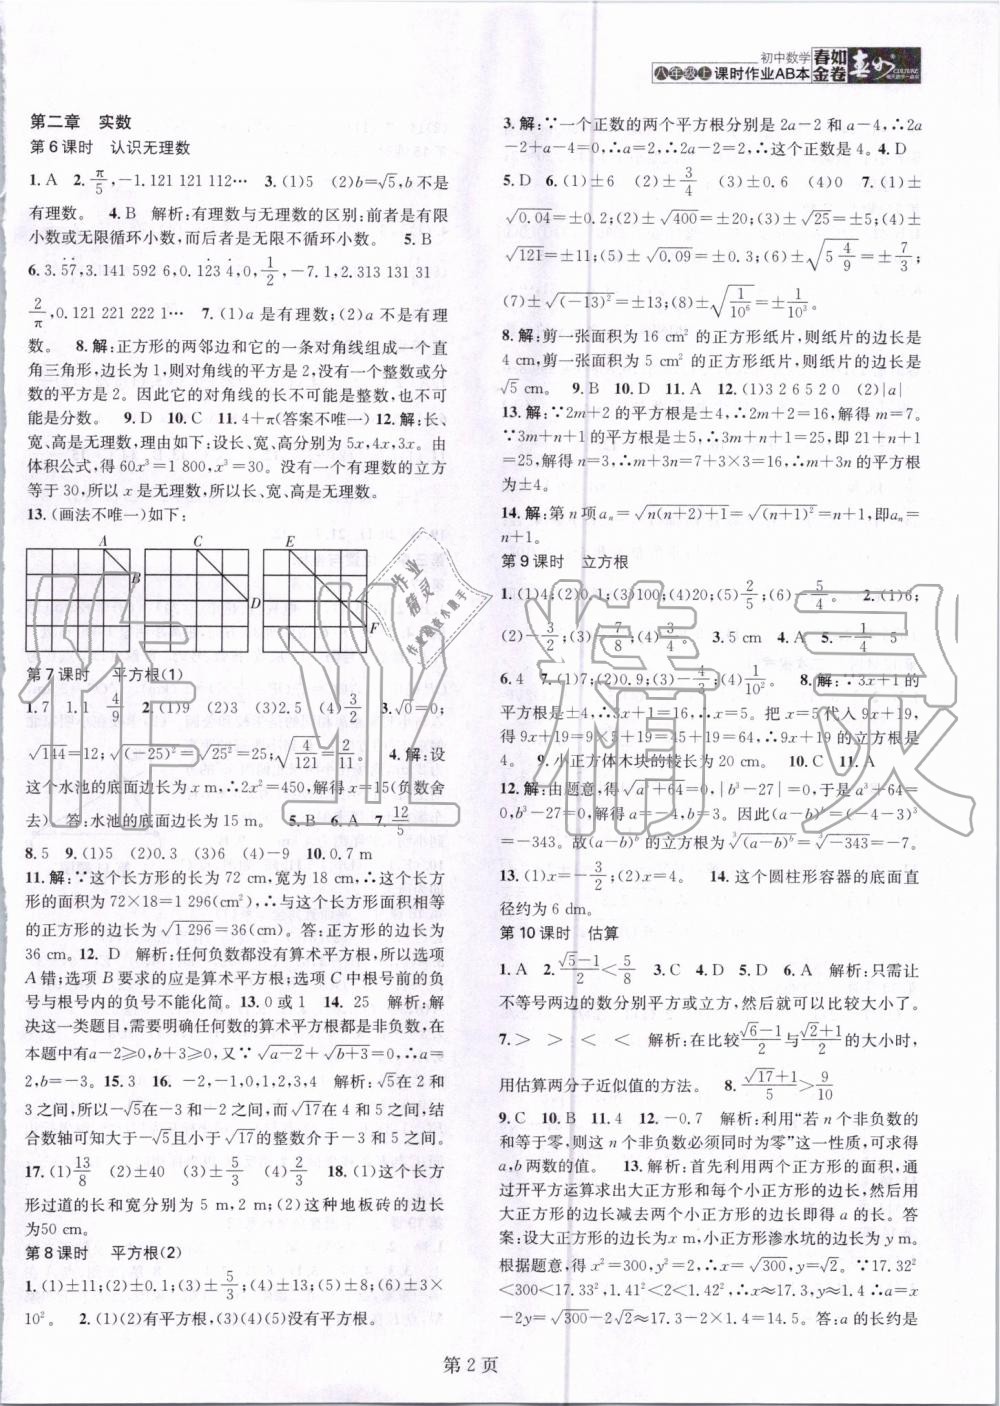 初中数学
八年级上 课时作业AB本
春如金卷
第二章 实数
第6课时 认识无理数
1. A 2. π/5, -1.121 121 112… 3. (1)5 (2)b=√5, b不是
有理数。 4. B 解析:有理数与无理数的区别:前者是有限
小数或无限循环小数,而后者是无限不循环小数。 5. B
6. 3.5̇7̇, 3.141 592 6, 0.1̇23 4̇, 0, 1/2, -7.1, 2.313 131 31
2/π, 0.121 221 222 1… 7. (1)a是有理数;(2)a不是有理
数。 8. 解:正方形的两邻边和它的一条对角线组成一个直
角三角形,边长为1,则对角线的平方是2,没有一个整数或分
数的平方为2。因此它的对角线的长不可能是整数,也不可
能是分数。 9. D 10. C 11. 4+π(答案不唯一) 12. 解:长、
宽、高是无理数,理由如下:设长、宽、高分别为5x,4x,3x。由
体积公式,得60x³=1 800,x³=30。没有一个有理数的立方
等于30,所以x是无理数,所以长、宽、高是无理数。
13. (画法不唯一)如下:
A B C D E F
第7课时 平方根(1)
1. 7 1.1 4/9 2. (1)9 (2)3 (3)2.5 (4)3/2 3. √0=0;
√144=12;√(-25)²=√25²=25;√(4/121)=2/11。 4. 解:设
这个水池的底面边长为x m,∴2x²=450,解得x=15(负数舍
去) 答:水池的底面边长为15 m。 5. B 6. A 7. 12/5
8. 5 9. (1)5 (2)0.3 (3)6 (4)-9 10. 0.7 m
11. 解:∵这个长方形的长为72 cm,宽为18 cm,∴这个长方
形的面积为72×18=1 296(cm²),∴与这个长方形面积相等
的正方形的边长为√1 296=36(cm)。答:正方形的边长为
36 cm。 12. D 解析:任何负数都没有算术平方根,故选项
A错;选项B要求的应是算术平方根;选项C中根号前的负
号与根号内的负号不能化简。 13. 0或1 14. 25 解析:解
决这一类题目,需要明确任何数的算术平方根都是非负数,在
本题中有a-2≥0,b+3≥0,又∵√a-2+√b+3=0,∴a=
2,b=-3。 15. 3 16. -2,-1,0,1,2,3,4 解析:√5在2和
3之间,所以-√5在-2和-3之间,而√17在4和5之间,结
合数轴可知大于-√5且小于√17的整数介于-3和5之间。
17. (1)13/8 (2)±40 (3)±5/3 (4)2/3 18. (1)这个长方
形过道的长和宽分别为5 m,2 m;(2)这种地板砖的边长
为50 cm。
第8课时 平方根(2)
1. (1)±11;(2)±0.1;(3)±5/3;(4)±13;(5)±8;(6)±3×
10²。 2. (1)(2)有平方根,(3)(4)(5)没有平方根。
3. 解:∵一个正数的两个平方根分别是2a-2和a-4,∴2a
-2+a-4=0,∴a=2,∴2a-2=2,∴这个正数是4。 4. D
5. D 6. (1)±6 (2)±3/4 (3)±0.6 (4)0 7. (1)±
√0.04=±0.2;(2)±√400=±20;(3)±√25=±5;(4)±
√121=±11;(5)±√0.09=±0.3;(6)±√(5 4/9)=±7/3;
(7)±√(-13)²=±13;(8)±√(1/10⁶)=±1/10³。
8. 解:剪一张面积为16 cm²的正方形纸片,则纸片的边长是
4 cm,剪一张面积为5 cm²的正方形纸片,则纸片的边长是
√5 cm。 9. B 10. D 11. A 12. (1)3 2 6 5 2 0 (2)|a|
13. 解:∵2m+2的平方根是±4,∴2m+2=16,解得m=7。
∵3m+n+1的平方根是±5,∴3m+n+1=25,即21+n+1
=25,解得n=3,∴m+3n=7+3×3=16,∴m+3n的平方根
为±4。
14. 解:第n项aₙ=√n(n+2)+1=√(n+1)²=n+1,即aₙ=
n+1。
第9课时 立方根
1. (1)4;(2)0.1;(3)100;(4)20;(5)2/5;(6)-5/4。 2. (1)6;
(2)-3/2;(3)-7/8;(4)3/4。 3. 5 cm 4. A 5. -1/4 5
6. 4 7. (1)5;(2)0.9;(3)-4/3;(4)1/10²。 8. 解:∵3x+1的
平方根是±4,∴3x+1=16,∴x=5。把x=5代入9x+19,
得9x+19=9×5+19=45+19=64,∴9x+19的立方根是
4。 9. 小正方体木块的棱长为20 cm。 10. C 11. A
12. 解:由题意,得√a³+64=0,|b³-27|=0,于是a³+64=
0,b³-27=0,解得a=-4,b=3。因此(a-b)⁶=(-4-3)³
=-343。故(a-b)⁶的立方根为∛(a-b)⁶=∛-343=-7。
13. (1)x=-3/2;(2)x=4。 14. 这个圆柱形容器的底面直
径约为6 dm。
第10课时 估算
1. A 2. (√5-1)/2<5/8 3. C 4. D 5. D 6. A 解析:只需让
不等号两边的数分别平方或立方,然后就可以比较大小了。
7. > > < < 解析:在比较(√6-1)/2与(√2+1)/2的大小时,
用估算两分子近似值的方法。 8. (√17+1)/5>9/10
9. C 10. B 11. 4 12. -0.7 解析:利用“若n个非负数的
和等于零,则这n个非负数必须同时为零”这一性质,可求得
a,b两数的值。 13. 解析:首先利用两个正方形的面积,通
过开平方运算求出大正方形和每个小正方形的边长,然后用
大正方形的边长减去两个小正方形的边长即得a的长。答
案:设大正方形的边长为x,小正方形渗水坑的边长为y。
根据题意,得x²=300,y²=2,∴x=√300,y=√2。∵17.32²
<300<17.33²,1.41²<2<1.42²,∴x≈17.3,y≈1.4∴a=x
-2y=√300-2√2≈17.3-2×1.4=14.5。答:a的长约是
第2页
作业精灵